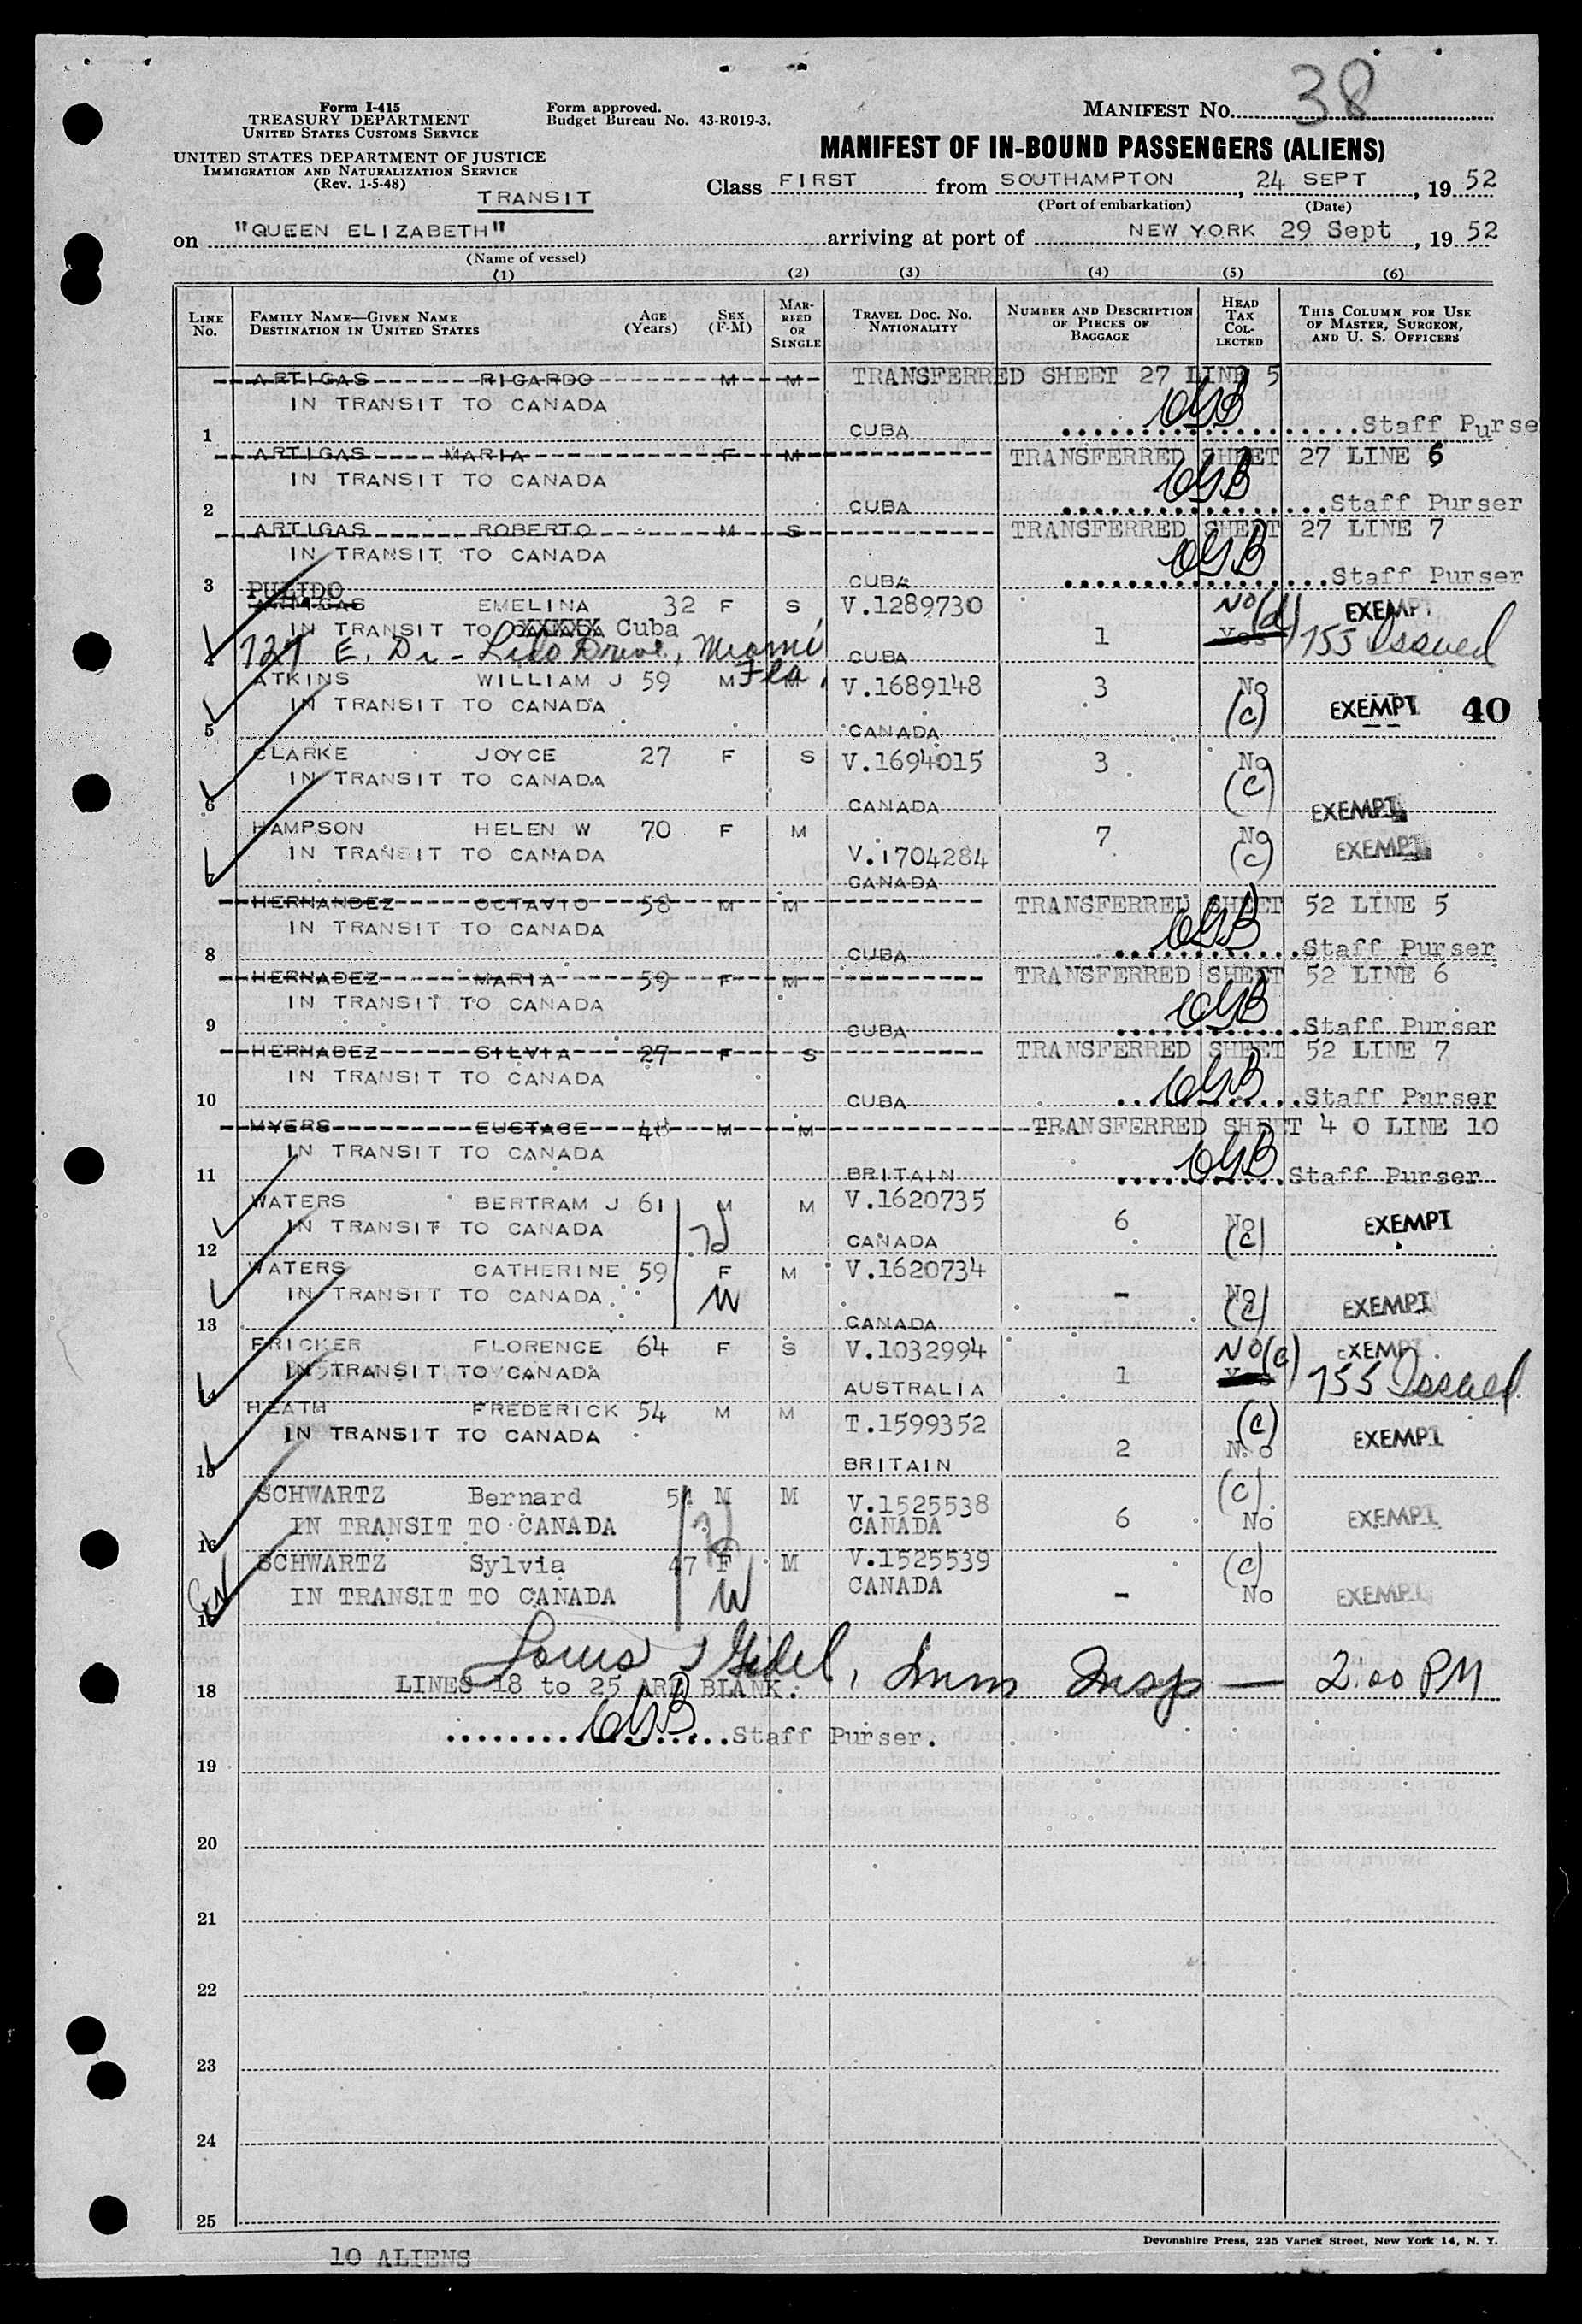 Form I-415
TREASURY DEPARTMENT
UNITED STATES CUSTOMS SERVICE
UNITED STATES DEPARTMENT OF JUSTICE
IMMIGRATION AND NATURALIZATION SERVICE
(Rev. 1-5-48)
Form approved.
Budget Bureau No. 43-R019-3.
MANIFEST No. 38
MANIFEST OF IN-BOUND PASSENGERS (ALIENS)
TRANSIT
Class FIRST from SOUTHAMPTON, 24 SEPT, 19 52
(Port of embarkation) (Date)
on "QUEEN ELIZABETH" arriving at port of NEW YORK 29 Sept, 19 52
(Name of vessel)
(1) (2) (3) (4) (5) (6)
LINE No. FAMILY NAME—GIVEN NAME DESTINATION IN UNITED STATES AGE (Years) SEX (F-M) MARRIED OR SINGLE TRAVEL DOC. NO. NATIONALITY NUMBER AND DESCRIPTION OF PIECES OF BAGGAGE HEAD TAX COLLECTED THIS COLUMN FOR USE OF MASTER, SURGEON, AND U. S. OFFICERS
ARTIGAS RICARDO M M TRANSFERRED SHEET 27 LINE 5
IN TRANSIT TO CANADA
1 CUBA Staff Purse
ARTIGAS MARIA F M TRANSFERRED SHEET 27 LINE 6
IN TRANSIT TO CANADA
2 CUBA Staff Purser
ARTIGAS ROBERTO M S TRANSFERRED SHEET 27 LINE 7
IN TRANSIT TO CANADA
3 CUBA Staff Purser
PULIDO
ARTIGAS EMELINA 32 F S V.1289730 No(d) EXEMPT
IN TRANSIT TO CANADA Cuba 1 Yes 755 Issued
4 727 E. Di-Lido Drive, Miami Fla. CUBA
ATKINS WILLIAM J 59 M M V.1689148 3 No
IN TRANSIT TO CANADA (c) EXEMPT 40
5 CANADA
CLARKE JOYCE 27 F S V.1694015 3 No
IN TRANSIT TO CANADA (c)
6 CANADA EXEMPT
HAMPSON HELEN W 70 F M 7 No
IN TRANSIT TO CANADA V.1704284 (c) EXEMPT
7 CANADA
HERNANDEZ OCTAVIO 58 M M TRANSFERRED SHEET 52 LINE 5
IN TRANSIT TO CANADA
8 CUBA Staff Purser
HERNADEZ MARIA 59 F M TRANSFERRED SHEET 52 LINE 6
IN TRANSIT TO CANADA
9 CUBA Staff Purser
HERNADEZ SILVIA 27 F S TRANSFERRED SHEET 52 LINE 7
IN TRANSIT TO CANADA
10 CUBA Staff Purser
MYERS EUSTACE 48 M M TRANSFERRED SHEET 4 0 LINE 10
IN TRANSIT TO CANADA
11 BRITAIN Staff Purser
WATERS BERTRAM J 61 M M V.1620735
IN TRANSIT TO CANADA H 6 No (c) EXEMPT
12 CANADA
WATERS CATHERINE 59 F M V.1620734
IN TRANSIT TO CANADA W - No (c) EXEMPT
13 CANADA
FRICKER FLORENCE 64 F S V.1032994 No(c) EXEMPT
IN TRANSIT TO CANADA 1 Yes 755 Issued
14 AUSTRALIA
HEATH FREDERICK 54 M M T.1599352 (c)
IN TRANSIT TO CANADA 2 No EXEMPT
15 BRITAIN
SCHWARTZ Bernard 54 M M V.1525538 (c)
IN TRANSIT TO CANADA H CANADA 6 No EXEMPT
16
SCHWARTZ Sylvia 47 F M V.1525539 (c)
IN TRANSIT TO CANADA W CANADA - No EXEMPT
17
Imm Insp — 2:00 PM
18 LINES 18 to 25 ARE BLANK.
Staff Purser.
19
20
21
22
23
24
25
Devonshire Press, 225 Varick Street, New York 14, N. Y.
10 ALIENS